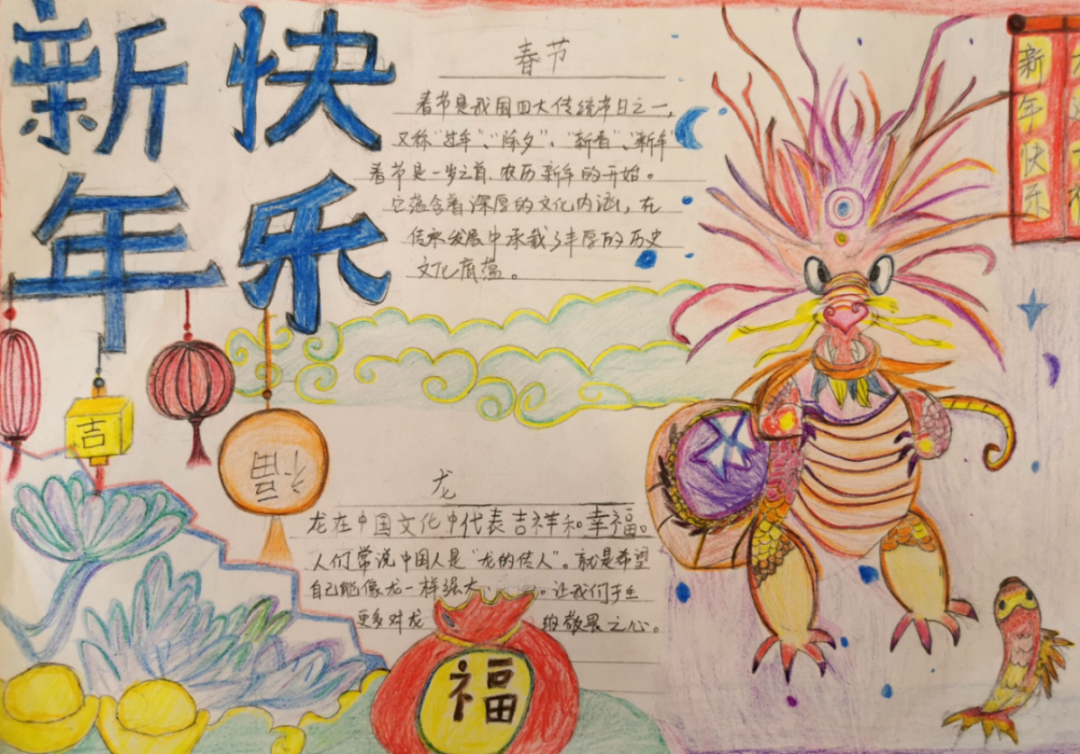 新快
年乐
春节
春节是我国四大传统节日之一,
又称"过年"、"除夕"、"新春"、"新年"
春节是一岁之首、农历新年的开始。
它蕴含着深厚的文化内涵,在
传承发展中承载了丰厚的历史
文化底蕴。
新年快乐
大
吉
福
龙
龙在中国文化中代表吉祥和幸福。
人们常说中国人是"龙的传人"。就是希望
自己能像龙一样强大。让我们
更多对龙的敬畏之心。
福